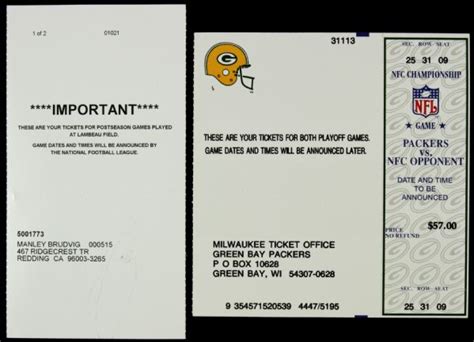 1 of 2 01021
****IMPORTANT****
THESE ARE YOUR TICKETS FOR POSTSEASON GAMES PLAYED
AT LAMBEAU FIELD.
GAME DATES AND TIMES WILL BE ANNOUNCED BY
THE NATIONAL FOOTBALL LEAGUE.
5001773
MANLEY BRUDVIG 000515
467 RIDGECREST TR
REDDING CA 96003-3265
31113
G
THESE ARE YOUR TICKETS FOR BOTH PLAYOFF GAMES.
GAME DATES AND TIMES WILL BE ANNOUNCED LATER.
MILWAUKEE TICKET OFFICE
GREEN BAY PACKERS
P O BOX 10628
GREEN BAY, WI 54307-0628
9 354571520539 4447/5195
SEC. ROW SEAT
25 31 09
NFC CHAMPIONSHIP
NFL
GAME
PACKERS
vs.
NFC OPPONENT
DATE AND TIME
TO BE
ANNOUNCED
PRICE
NO REFUND
$57.00
SEC. ROW SEAT
25 31 09